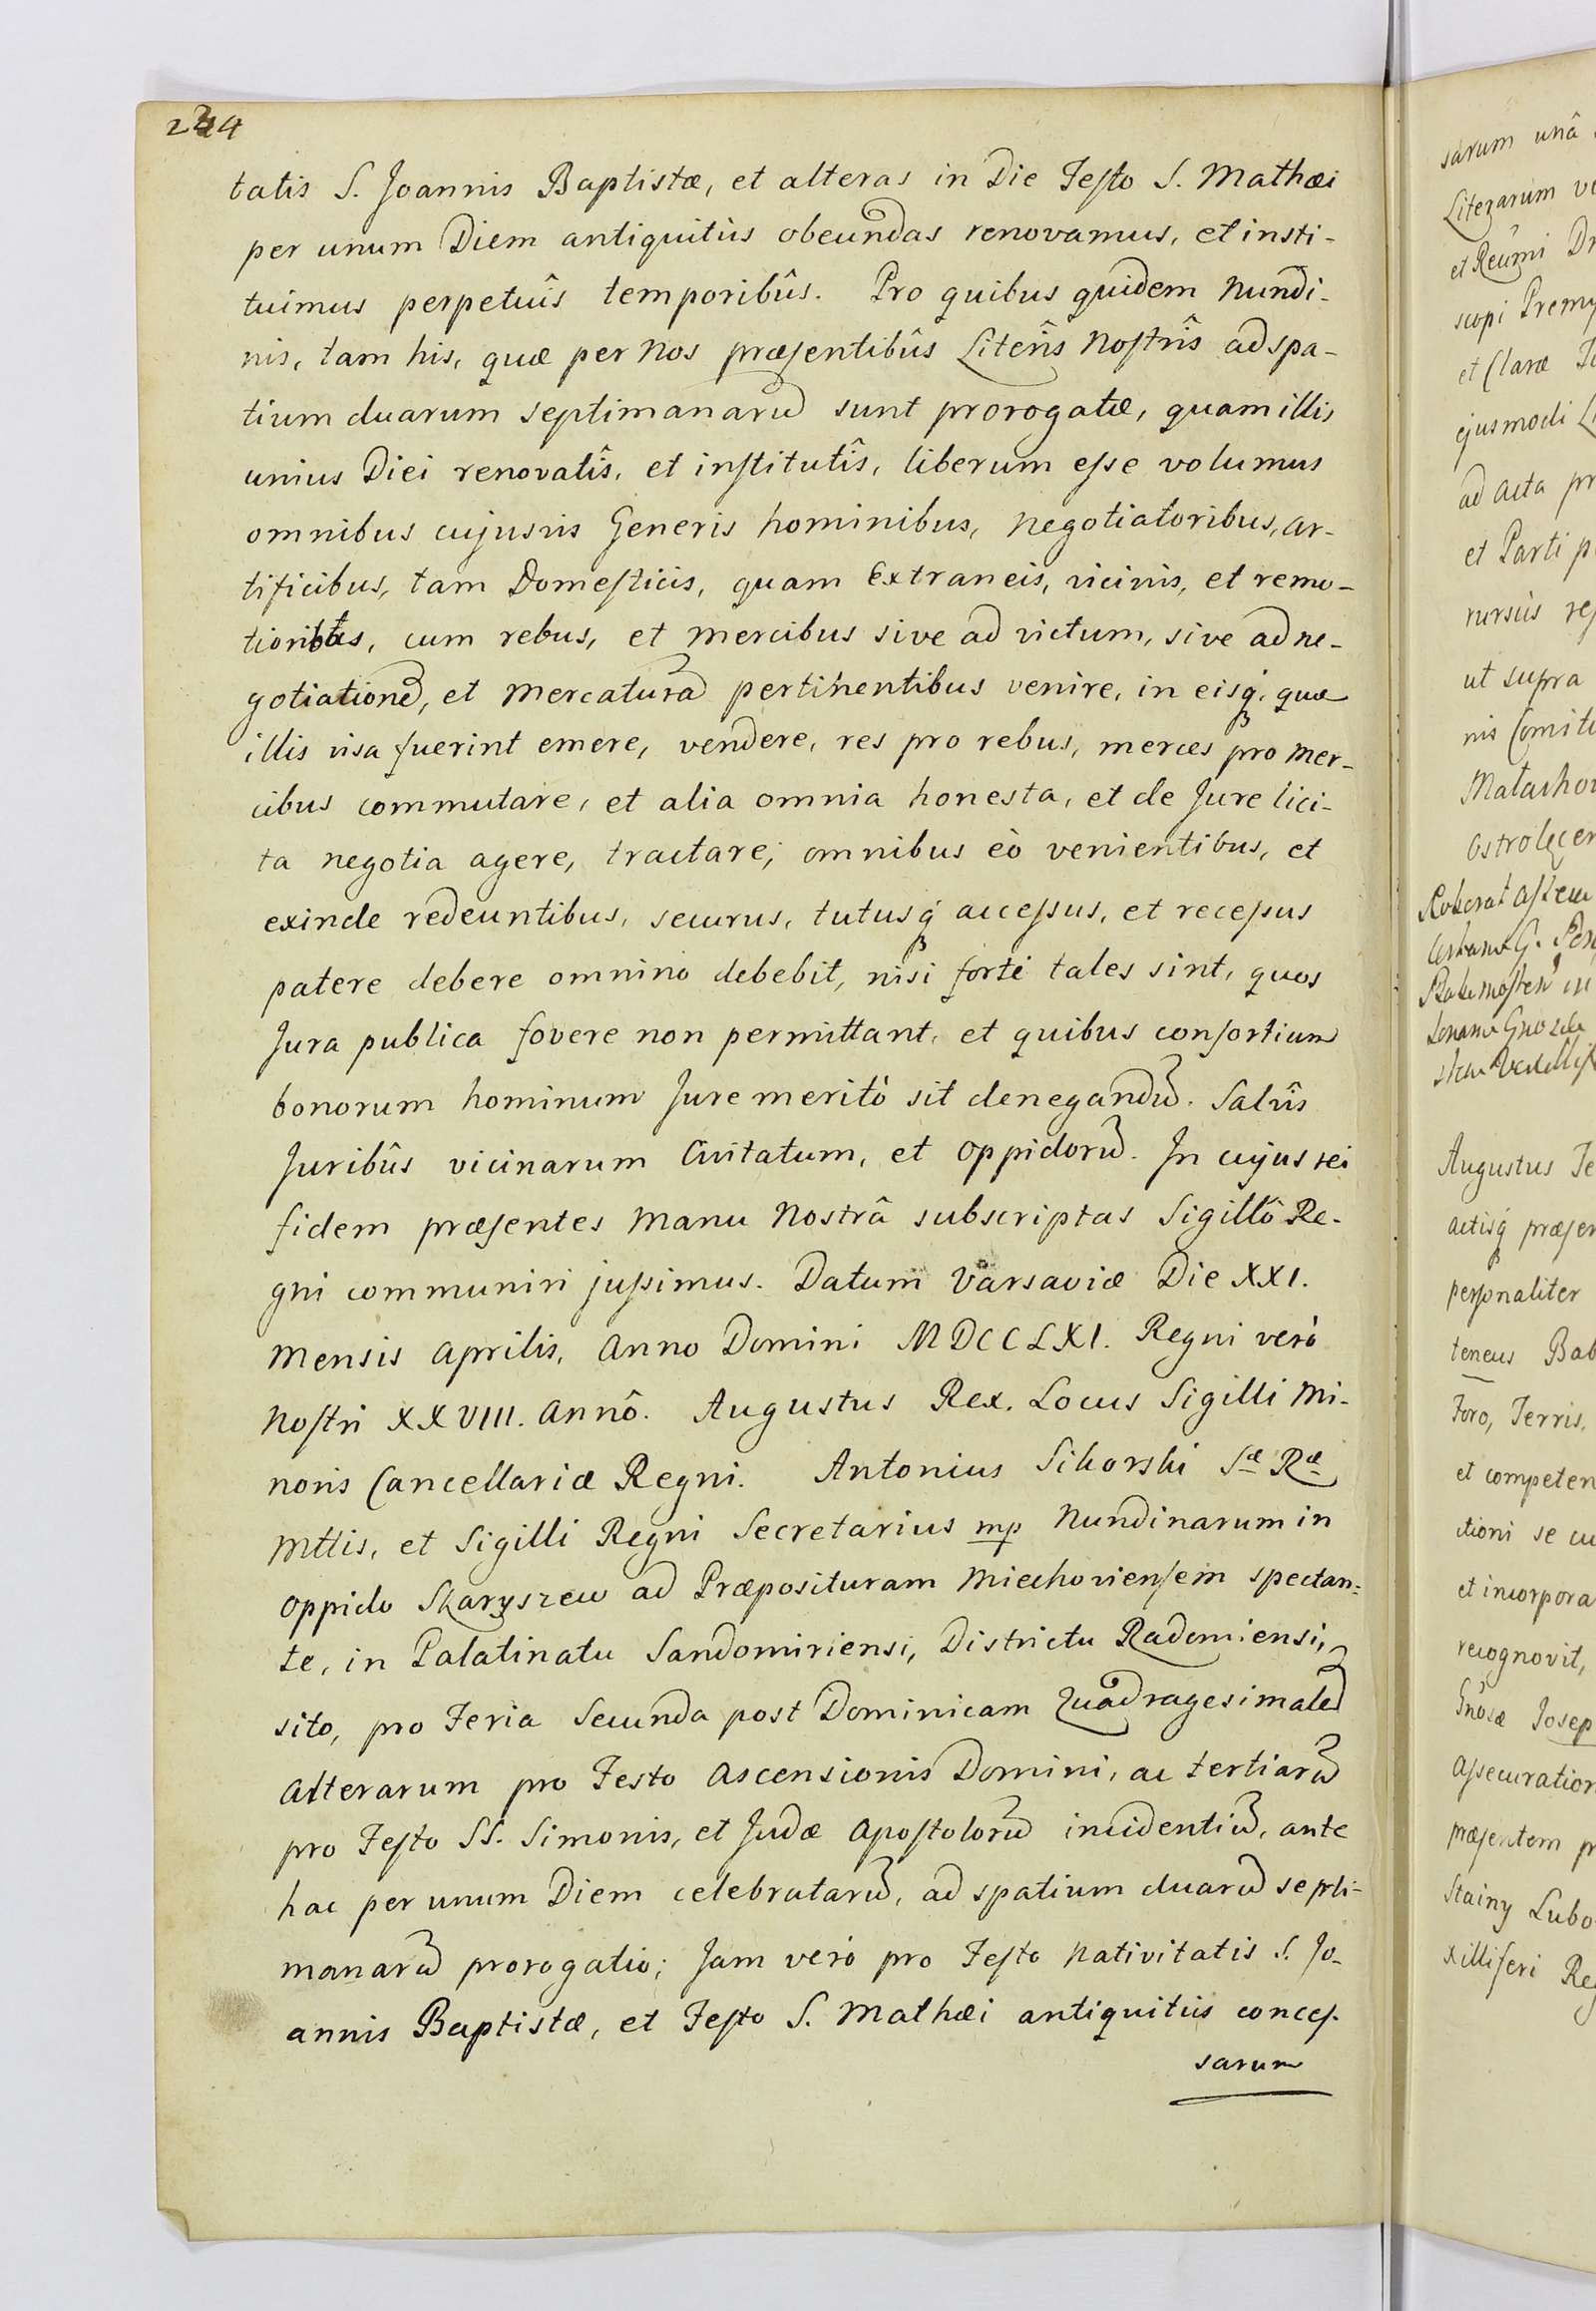 234
tatis S. Joannis Baptistæ, et alteras in Die Festo S. Mathæi
per unum Diem antiquitùs obeundas renovamus, et insti-
tuimus perpetuîs temporibûs. Pro quibus quidem Nundi-
nis, tam his, quæ per Nos præsentibûs Literîs Nostrîs ad spa-
tium duarum septimanarũ sunt prorogatæ, quam illis
unius Diei renovatîs, et institutîs, liberum esse volumus
omnibus cujusvis Generis hominibus, negotiatoribus, ar-
tificibus, tam Domesticis, quam Extraneis, vicinis, et remo-
tioribus, cum rebus, et mercibus sive ad victum, sive ad ne-
gotiationẽ, et mercaturã pertinentibus venire, in eisq́, quæ
illis visa fuerint emere, vendere, res pro rebus, merces pro mer-
cibus commutare, et alia omnia honesta, et de Jure lici-
ta negotia agere, tractare; omnibus eò venientibus, et
exinde redeuntibus, securus, tutusq́ accessus, et recessus
patere debere omnino debebit, nisi fortè tales sint, quos
Jura publica fovere non permittant, et quibus consortium
bonorum hominum Jure meritò sit denegandũ. Salvîs
Juribûs vicinarum Civitatum, et Oppidorũ. In cujus rei
fidem præsentes Manu Nostrâ subscriptas Sigillô Re-
gni communiri jussimus. Datum Varsaviæ Die XXI.
Mensis Aprilis, Anno Domini MDCCLXI. Regni verò
Nostri XXVIII. Annô. Augustus Rex. Locus Sigilli Mi-
noris Cancellariæ Regni. Antonius Sikorski Sæ Ræ
Mttis, et Sigilli Regni Secretarius mp Nundinarum in
Oppido Skaryszew ad Præposituram Miechoviensem spectan-
te, in Palatinatu Sandomiriensi, Districtu Radomiensi,
sito, pro Feria Secunda post Dominicam Quadragesimalẽ
Alterarum pro Festo Ascensionis Domini, ac tertiarũ
pro Festo SS. Simonis, et Judæ Apostolorũ incidentiũ, ante
hac per unum Diem celebratarũ, ad spatium duarũ septi-
manarũ prorogatio; Jam verò pro Festo Nativitatis S. Jo-
annis Baptistæ, et Festo S. Mathæi antiquitùs conces-
sarum
sarum unâ
Literarum
et Reûmi
scopi
et Claræ
ejusmodi
ad Acta
et Parti
rursùs
ut supra
nis
Augustus
actisq́
personaliter
Foro, Terris,
et
se
et
recognovit,